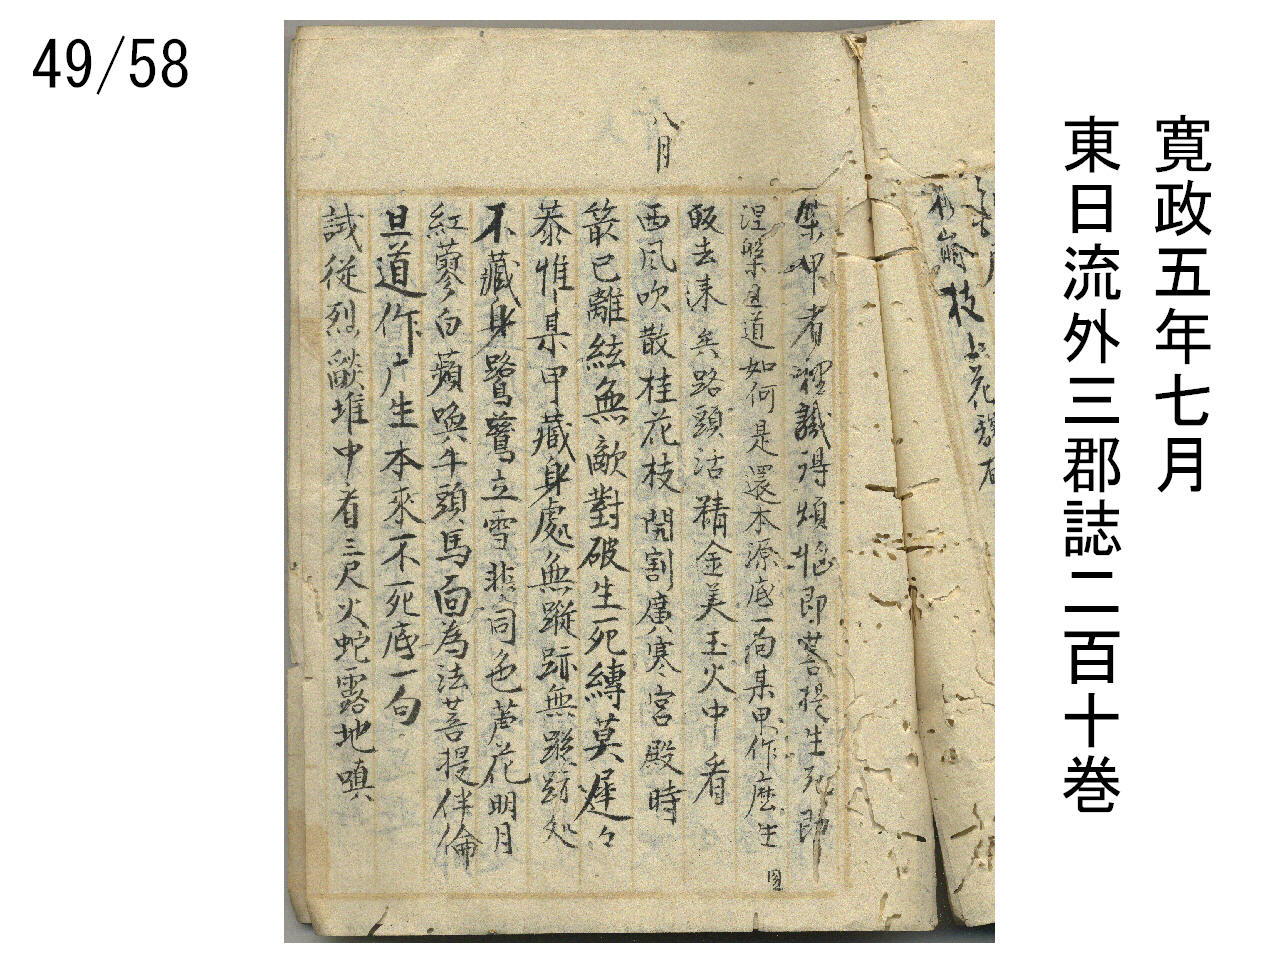 49/58
寛政五年七月
東日流外三郡誌二百十巻
枝上花
八月
某甲者裡識得煩悩即菩提生死即
涅槃且道如何是還本源底一句某甲作麼生
皈去来兵路頭活精金美玉火中看
西風吹散桂花枝閃割廣寒宮殿時
箭已離絃無敵對破生死縛莫遅々
恭惟某甲藏身處無蹤跡無蹤跡処
不藏身鷺鷥立雪非同色芦花明月
紅蓼白蘋喚牛頭馬面為法菩提伴倫
且道作广生本來不死底一句
試從烈燄堆中看三尺火蛇露地嗔